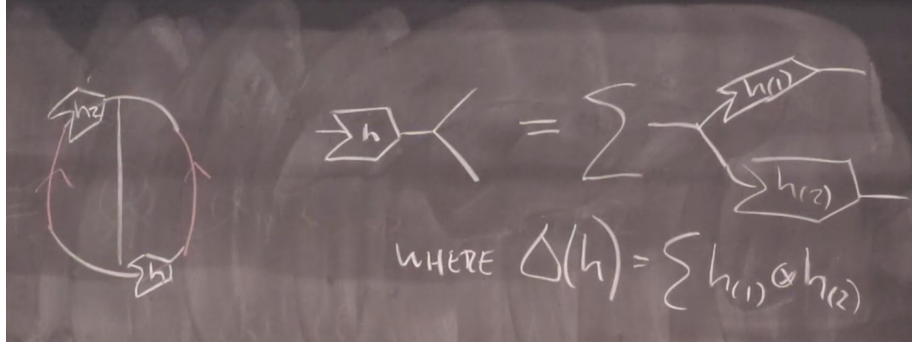 h2 h = Σ h(1)
h h(2)
WHERE Δ(h) = Σ h(1) ⊗ h(2)